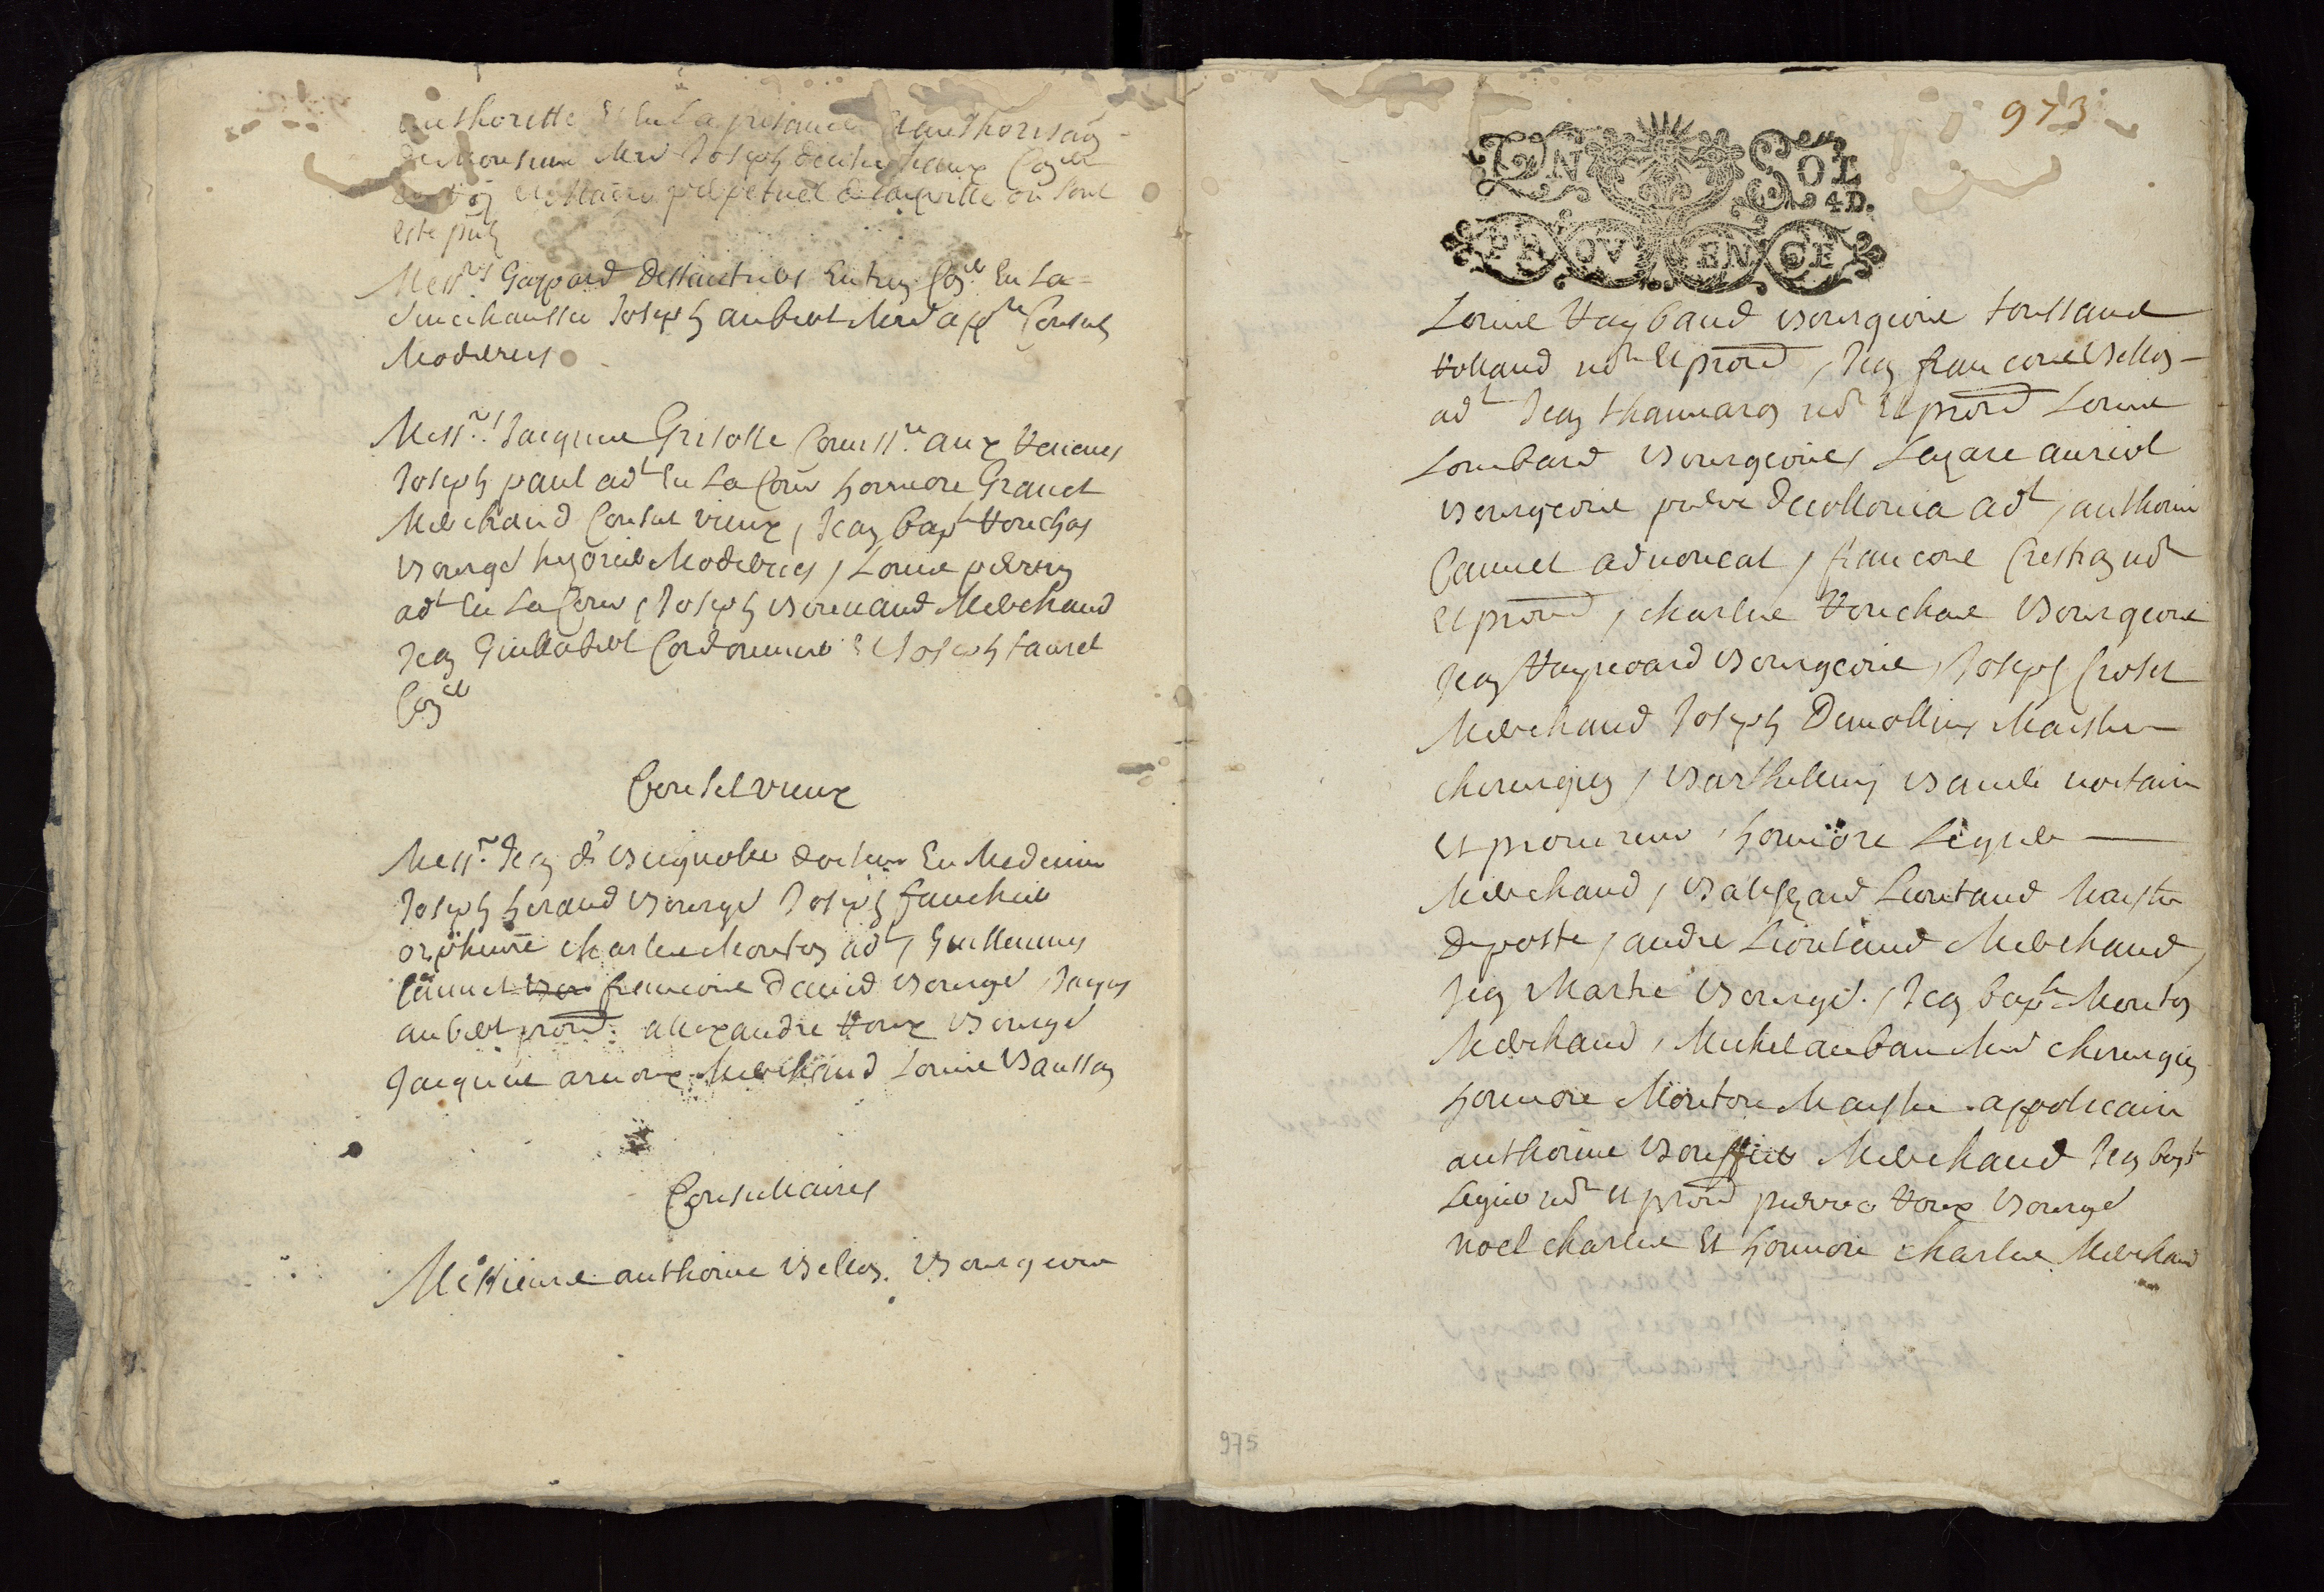 authorette Et En La presance Et authorisaõn
de Monsieur Mre Joseph
du Roy et Maire perpetuel de lad ville ou sont
este pnts
Messrs Gaspard Dessautries Entrez Conser En La
Senechaussee Joseph aubert Mre appre Consuls
Modernes
Messrs Jacques Grisolle Comissre aux Veuues
Joseph paul adt En La Cour honnore Granet
Merchand Consul vieux, Jean bapte Rouchas
Bourgs tresorier Moderne, Louis perrin
adt En La Cour, Joseph Bonnaud Merchand
Jean Guillabert Cordonnier Et Joseph fauret
Conser
Consel vieux
Messrs Jean de Brignolle docteur En Medecine
Joseph heraud Bourgs Joseph faucheir
orpheuvre Charles Mouton adt, Guilleaumes
Cannet francois David Bourgs, Jacques
aubert procr. allexandre Roux Bourgs
Jacques arnoux Merchand Louis Baussan
Conselliaires
Messieurs anthoine Bellon Bourgeois
973
GN SOL
4D.
PROVENCE
Louis Raybaud Bourgeois toussanct
Rolland nore Et procr, Jean francois Bellon
adt Jean thannaron nore Et procr Louis
Lombard Bourgeois, Lazare auriol
Bourgeois pierre De collonia adt, anthoine
Cannet aduoucat, francois Crestian nore
Et procr, charles Rouchas Bourgeois
Jean Raynoard Bourgeois, Joseph Croset
Merchand Joseph Demollins Maistre
chirurgien, Barthellemy Baude nottaire
Et procureur, honnore Leguier
Merchand, Balthezard Lieutaud Maistre
de poste, andre Lieutaud Merchand,
Jean Martre Bourgs. , Jean bapte Mouton
Merchand, Michel auban Mre chirurgien
honnore Mouton Maistre appoticaire
anthoine Bouffier Merchand Jean bapte
Leguier nore Et procr pierre Roux Bourgs
noel charles Et honnore charles Merchand
975